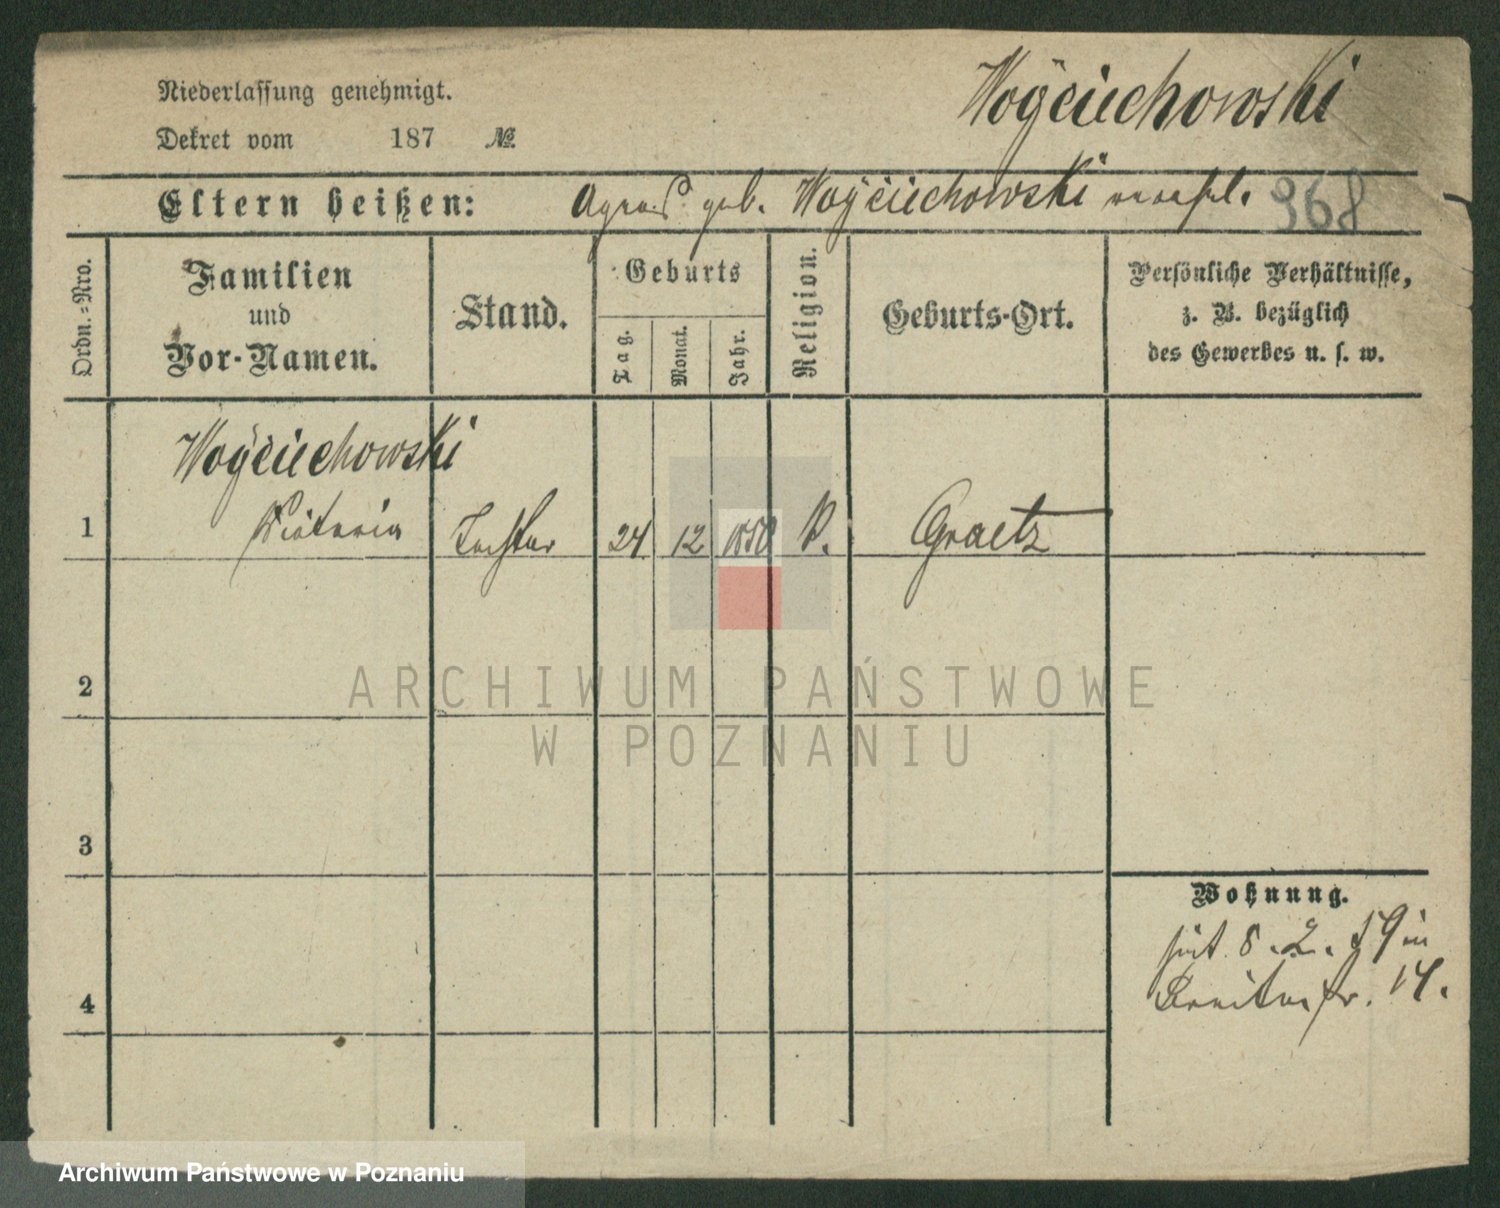 Niederlassung genehmigt.
Wojciechowski
Dekret vom 187 №
Eltern heißen: Agnes geb. Wojciechowski 968
Ordn.-Nro.
Familien
und
Vor-Namen.
Stand.
Geburts
Tag.
Monat.
Jahr.
Religion.
Geburts-Ort.
Persönliche Verhältnisse,
z. B. bezüglich
des Gewerbes u. s. w.
Wojciechowski
1 Victoria Tochter 24 12 1850 K. Graetz
2
3
4
Wohnung.
seit 8. 2. 79 in
Breitestr. 14.
ARCHIWUM PAŃSTWOWE
W POZNANIU
Archiwum Państwowe w Poznaniu